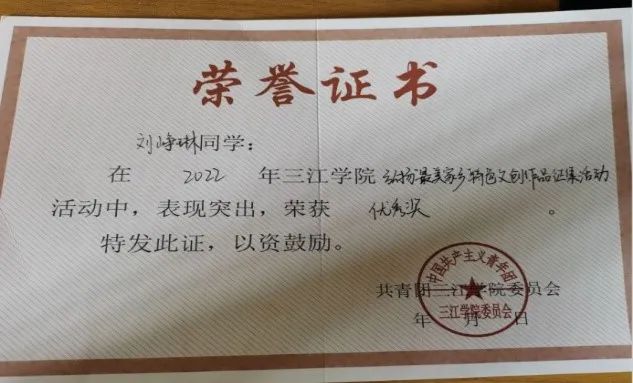 荣誉证书
刘峥琳同学：
在 2022 年三江学院弘扬最美家乡特色文创作品征集活动
活动中，表现突出，荣获 优秀奖 。
特发此证，以资鼓励。
共青团三江学院委员会
年 月 日
中国共产主义青年团
三江学院委员会